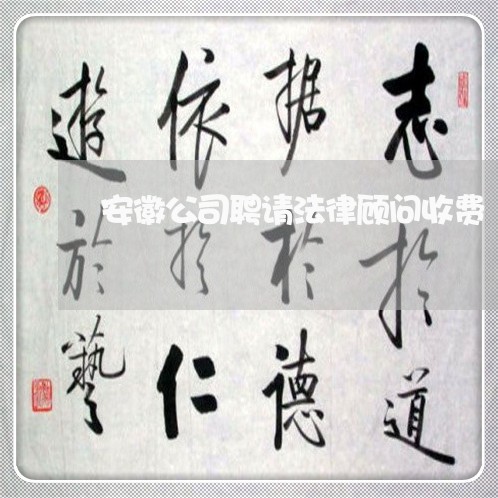 志於道
据於德
依於仁
遊於藝
安徽公司聘请法律顾问收费